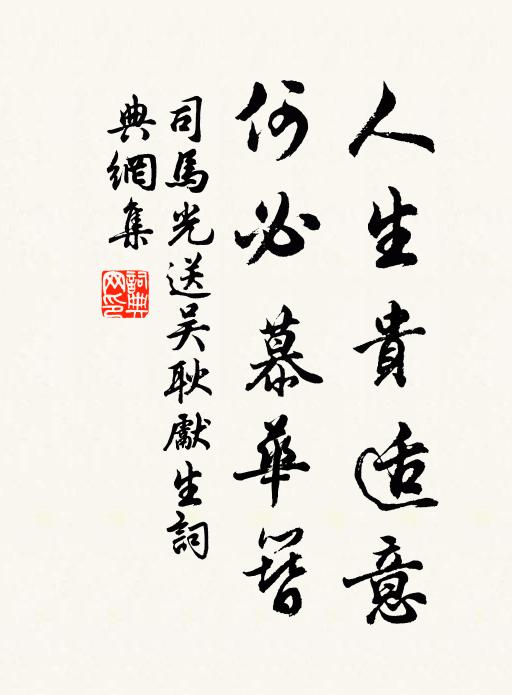 人生貴适意
何必慕華簪
司馬光送吴耿獻生詞
典網集
詞典網印